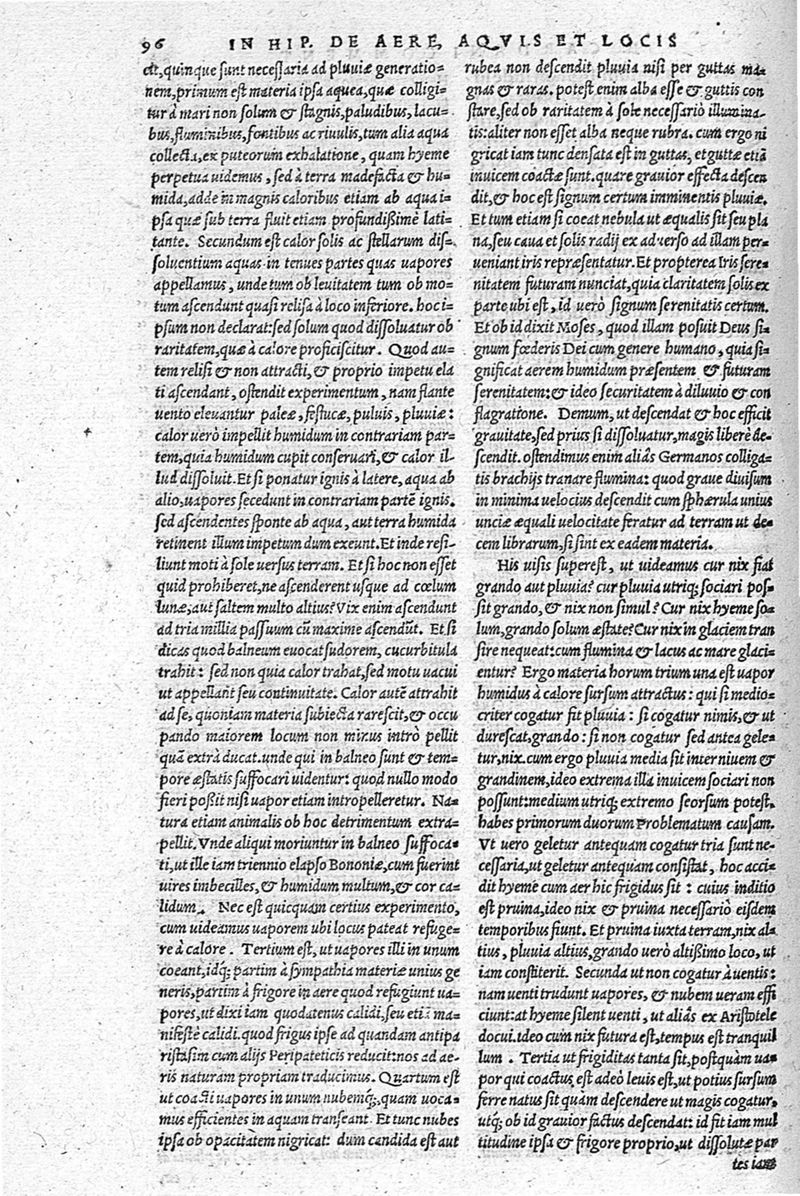 96 IN HIP. DE AERE, AQVIS ET LOCIS
cit, quinque sunt necessaria ad pluuiæ generatio-
nem, primum est materia ipsa aquea, quæ colligi-
tur à mari non solum & stagnis, paludibus, lacu-
bus, fluminibus, fontibus ac riuulis, tum alia aqua
collecta, ex puteorum exhalatione, quam hyeme
perpetua uidemus, sed à terra madefacta & hu-
mida, adde in magnis caloribus etiam ab aqua i-
psa quæ sub terra fluit etiam profundißimè lati-
tante. Secundum est calor solis ac stellarum dis-
soluentium aquas in tenues partes quas uapores
appellamus, unde tum ob leuitatem tum ob mo-
tum ascendunt quasi relisa à loco inferiore. hoc i-
psum non declarat: sed solum quod dissoluatur ob
raritatem, quæ à calore proficiscitur. Quod au-
tem relisi & non attracti, & proprio impetu ela
ti ascendant, ostendit experimentum, nam flante
uento eleuantur paleæ, festucæ, puluis, pluuiæ:
calor uerò impellit humidum in contrariam par-
tem, quia humidum cupit conseruari, & calor il-
lud dissoluit. Et si ponatur ignis à latere, aqua ab
alio, uapores secedunt in contrariam partē ignis.
sed ascendentes sponte ab aqua, aut terra humida
retinent illum impetum dum exeunt. Et inde resi-
liunt moti à sole uersus terram. Et si hoc non esset
quid prohiberet, ne ascenderent usque ad cœlum
lunæ, aut saltem multo altius? Vix enim ascendunt
ad tria millia passuum cū maxime ascendūt. Et si
dicas quod balneum euocat sudorem, cucurbitula
trahit: sed non quia calor trahat, sed motu uacui
ut appellant seu continuitate. Calor autē attrahit
ad se, quoniam materia subiecta rarescit, & occu
pando maiorem locum non minus intrò pellit
quā extrà ducat. unde qui in balneo sunt & tem-
pore æstatis suffocari uidentur: quod nullo modo
fieri poßit nisi uapor etiam intropelleretur. Na-
tura etiam animalis ob hoc detrimentum extra-
pellit. Vnde aliqui moriuntur in balneo suffoca-
ti, ut ille iam triennio elapso Bononiæ, cum fuerint
uires imbecilles, & humidum multum, & cor ca-
lidum. Nec est quicquam certius experimento,
cum uideamus uaporem ubi locus pateat refuge-
re à calore. Tertium est, ut uapores illi in unum
coeant, idq; partim à sympathia materiæ unius ge
neris, partim à frigore in aere quod refugiunt ua-
pores, ut dixi iam quodatenus calidi, seu etiā ma-
nifestè calidi. quod frigus ipse ad quandam antipa
ristasim cum alijs Peripateticis reducit: nos ad ae-
ris naturam propriam traducimus. Quartum est
ut coacti uapores in unum nubemq;, quam uoca-
mus efficientes in aquam transeant. Et tunc nubes
ipsa ob opacitatem nigricat: dum candida est aut
rubea non descendit pluuia nisi per guttas ma-
gnas & raras. potest enim alba esse & guttis con
stare, sed ob raritatem à sole necessariò illumina-
tis: aliter non esset alba neque rubra. cum ergo ni
gricat iam tunc densata est in guttas, et guttæ etiā
inuicem coactæ sunt. quare grauior effecta descen
dit, & hoc est signum certum imminentis pluuiæ.
Et tum etiam si coeat nebula ut æqualis sit seu pla
na, seu caua et solis radij ex aduerso ad illam per-
ueniant iris repræsentatur. Et propterea Iris sere-
nitatem futuram nunciat, quia claritatem solis ex
parte ubi est, id uerò signum serenitatis certum.
Et ob id dixit Moses, quod illam posuit Deus si-
gnum fœderis Dei cum genere humano, quia si-
gnificat aerem humidum præsentem & futuram
serenitatem: & ideo securitatem à diluuio & con
flagratione. Demum, ut descendat & hoc efficit
grauitate, sed prius si dissoluatur, magis liberè de-
scendit. ostendimus enim aliâs Germanos colliga-
tis brachijs tranare flumina: quod graue diuisum
in minima uelocius descendit cum sphærula unius
unciæ æquali uelocitate feratur ad terram ut de-
cem librarum, si sint ex eadem materia.
His uisis superest, ut uideamus cur nix fiat
grando aut pluuia? cur pluuia utriq; sociari pos-
sit grando, & nix non simul? Cur nix hyeme so-
lum, grando solum æstate? Cur nix in glaciem tran
sire nequeat: cum flumina & lacus ac mare glaci-
entur? Ergo materia horum trium una est uapor
humidus à calore sursum attractus: qui si medio-
criter cogatur fit pluuia: si cogatur nimis, & ut
durescat, grando: si non cogatur sed antea gele-
tur, nix. cum ergo pluuia media sit inter niuem &
grandinem, ideo extrema illa inuicem sociari non
possunt: medium utriq; extremo seorsum potest.
habes primorum duorum Problematum causam.
Vt uero geletur antequam cogatur tria sunt ne-
cessaria, ut geletur antequam consistat, hoc acci-
dit hyeme cum aer hic frigidus sit: cuius inditio
est pruina, ideo nix & pruina necessariò eisdem
temporibus fiunt. Et pruina iuxta terram, nix al-
tius, pluuia altius, grando uerò altißimo loco, ut
iam constiterit. Secunda ut non cogatur à uentis:
nam uenti trudunt uapores, & nubem ueram effi
ciunt: at hyeme silent uenti, ut aliâs ex Aristotele
docui. ideo cum nix futura est, tempus est tranquil
lum. Tertia ut frigiditas tanta sit, postquàm ua-
por qui coactus est adeò leuis est, ut potius sursum
ferre natus sit quàm descendere ut magis cogatur,
utq; ob id grauior factus descendat: id fit iam mul
titudine ipsa & frigore proprio, ut dissolutæ par
tes iam